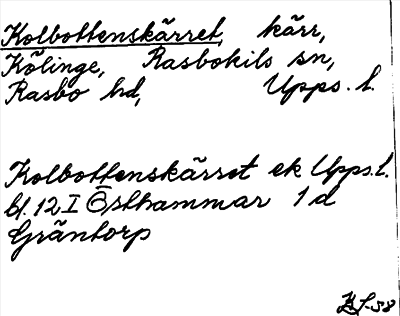 Kolbottenskärret, kärr,
Kölinge, Rasbokils sn,
Rasbo hd, Upps. l.
Kolbottenskärret ek Upps. l.
bl. 12 I Östhammar 1 d
Gräntorp